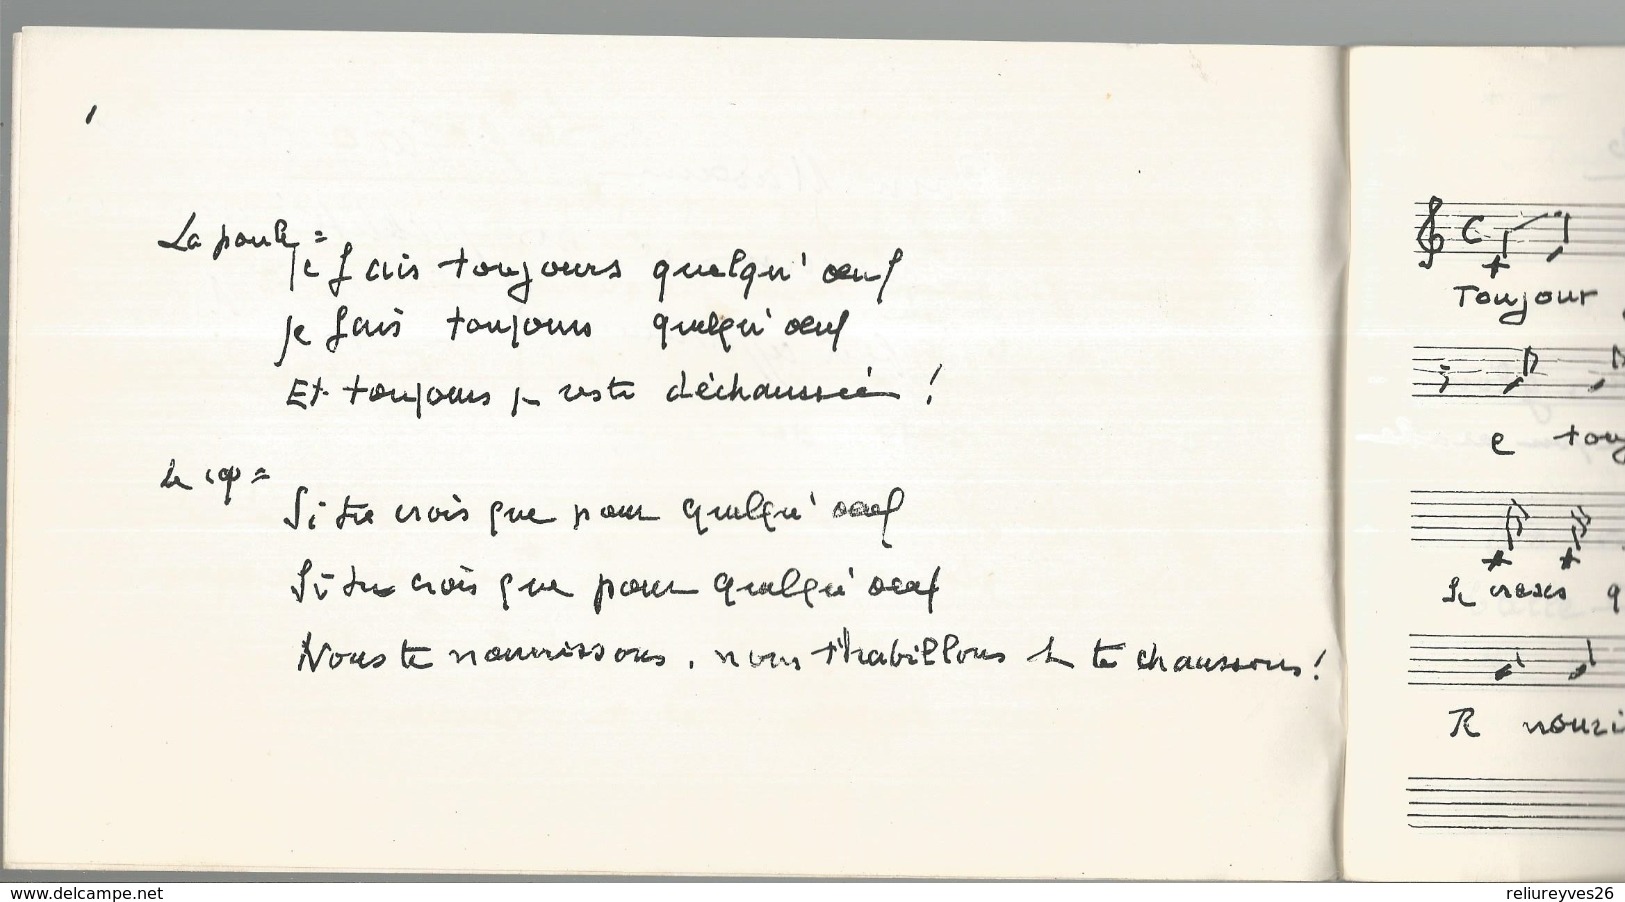 La poule =
Je fais toujours quelqu' oeuf
Je fais toujours quelqu' oeuf
Et toujours je reste déchaussée !
Le coq =
Si tu crois que pour quelqu' oeuf
Si tu crois que pour quelqu' oeuf
Nous te nourrissons, nous t'habillons & te chaussons !
C
Toujour
e touj
q
R nouri
www.delcampe.net
reliureyves26